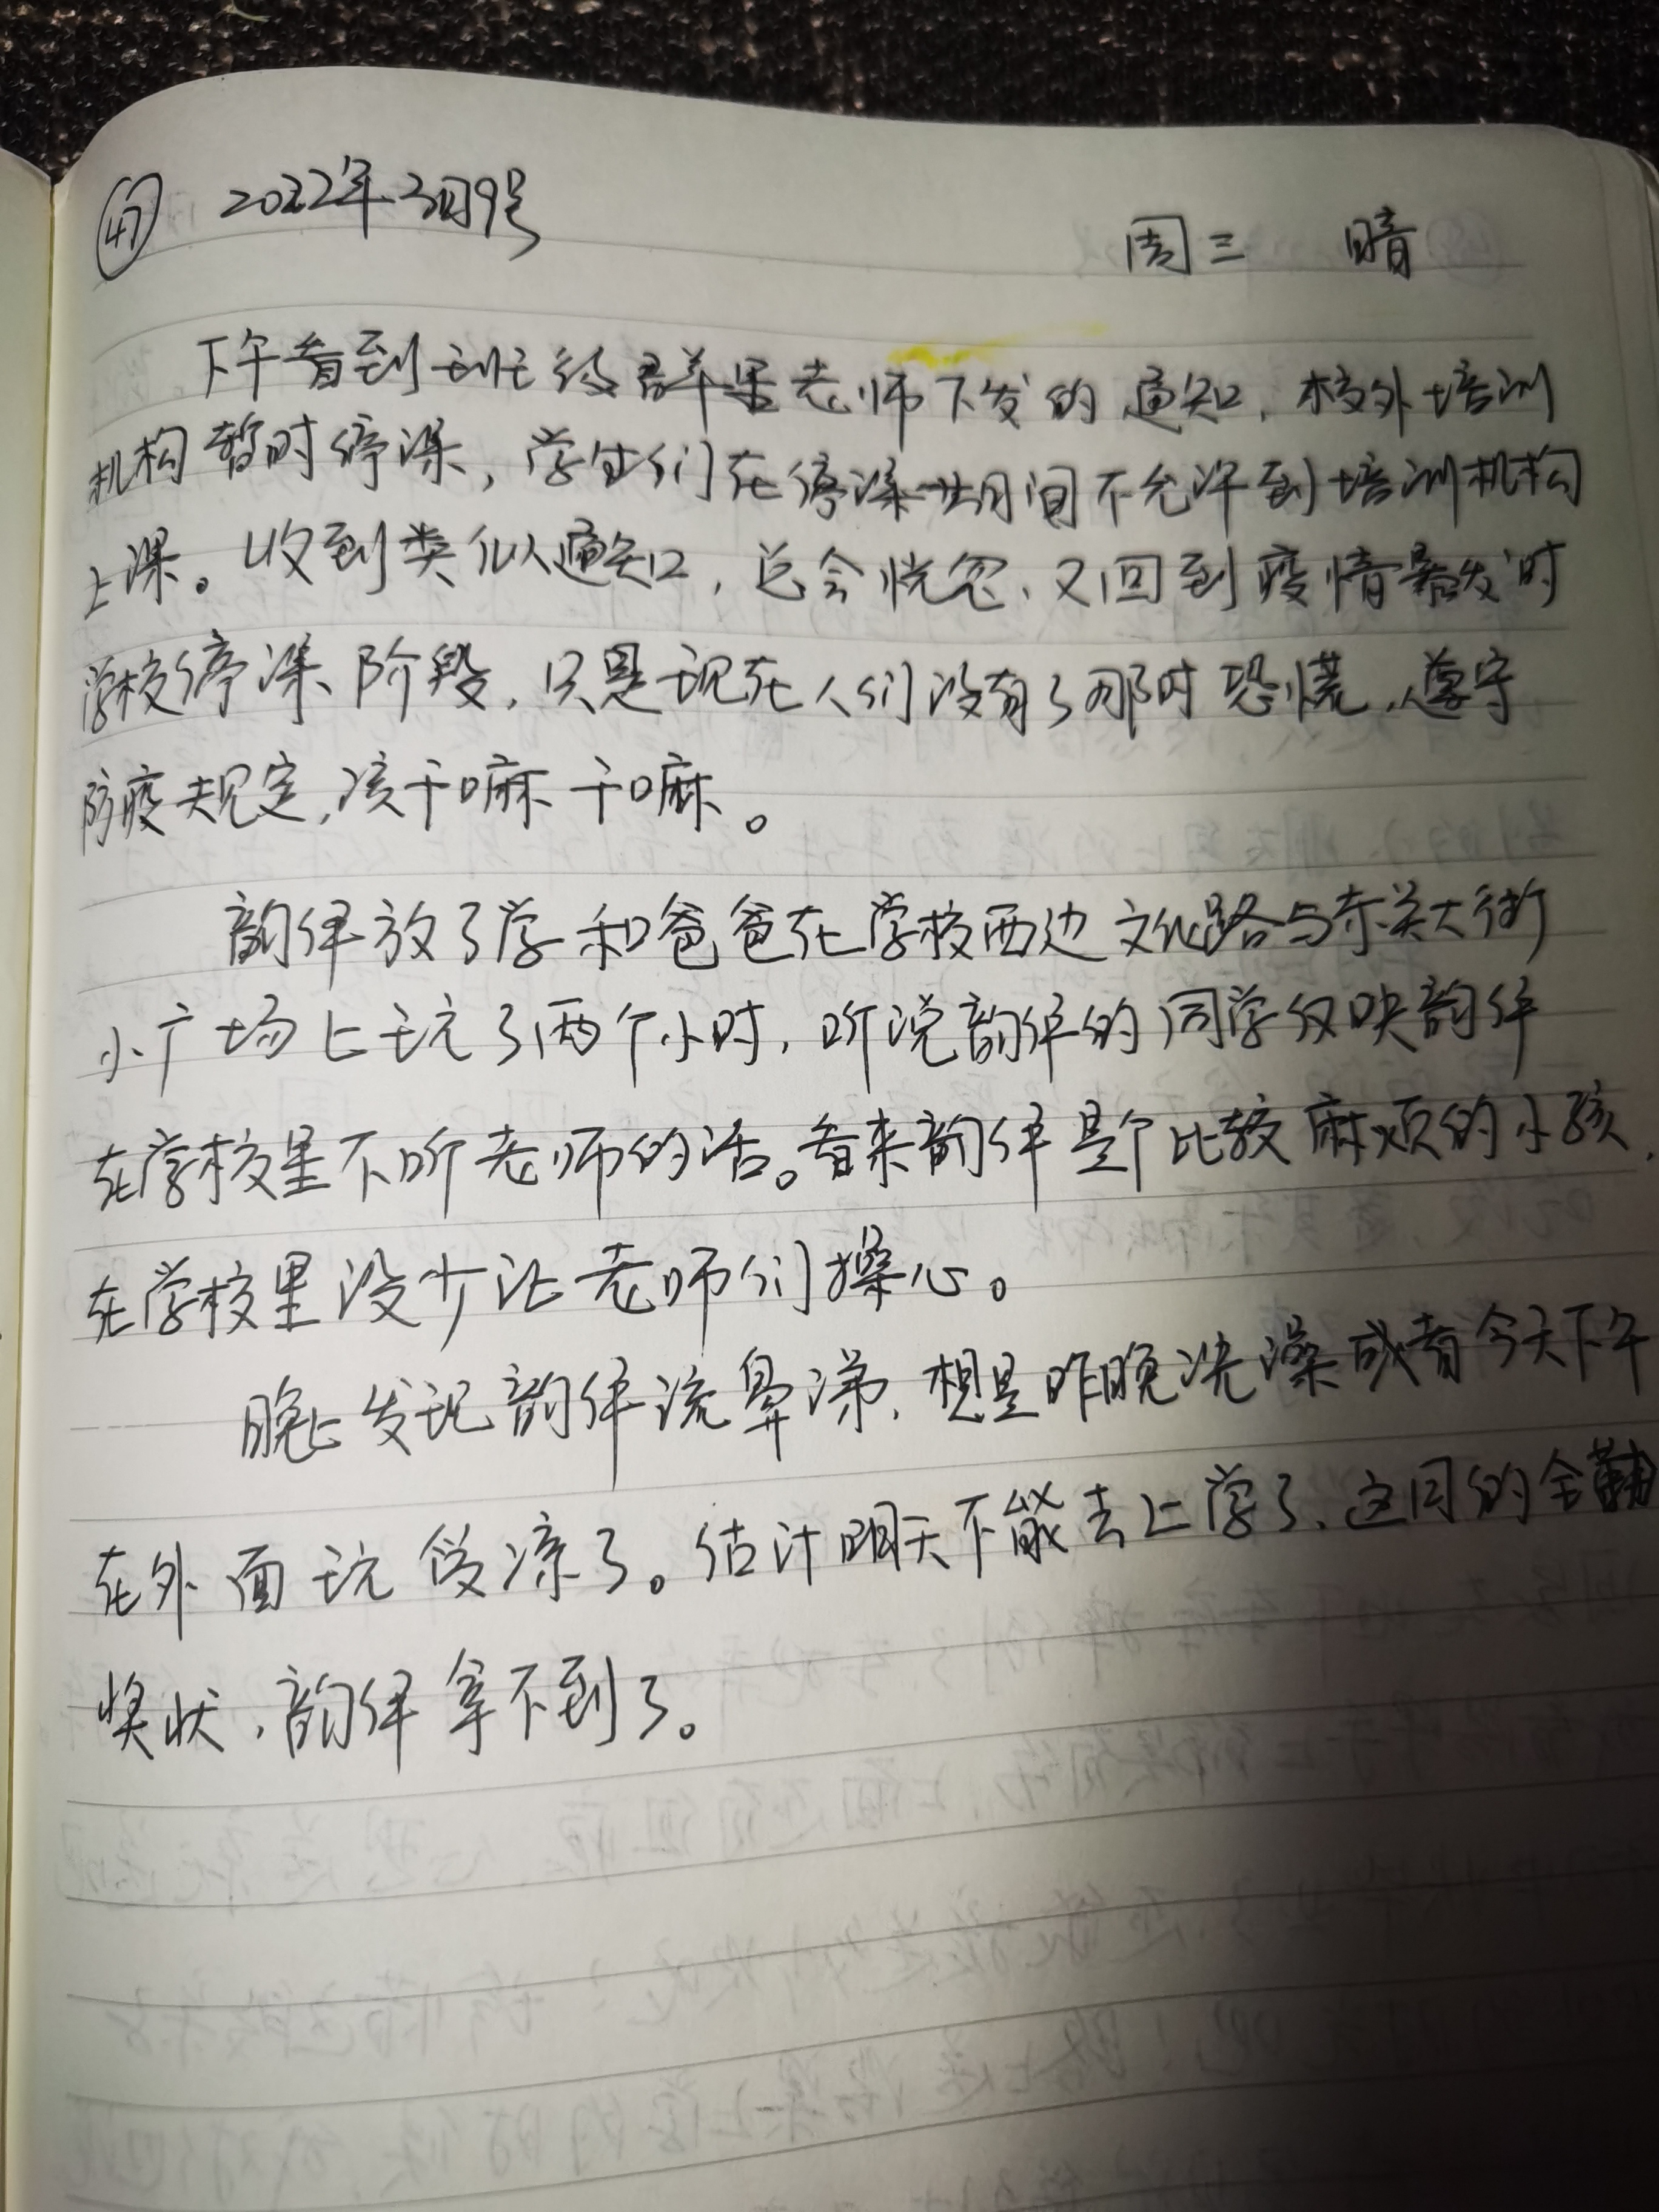 ㊼ 2022年3月9号
周三 晴
下午看到班级群里老师下发的通知，校外培训
机构暂时停课，学生们在停课期间不允许到培训机构
上课。收到类似通知，总会恍忽，又回到疫情暴发时
学校停课阶段，只是现在人们没有了那时恐慌，遵守
防疫规定，该干嘛干嘛。
韵伊放了学和爸爸在学校西边文化路与东关大街
小广场上玩了两个小时，听说韵伊的同学反映韵伊
在学校里不听老师的话。看来韵伊是个比较麻烦的小孩，
在学校里没少让老师们操心。
晚上发现韵伊流鼻涕，想是昨晚洗澡或者今天下午
在外面玩受凉了。估计明天不能去上学了，这月的全勤
奖状，韵伊拿不到了。